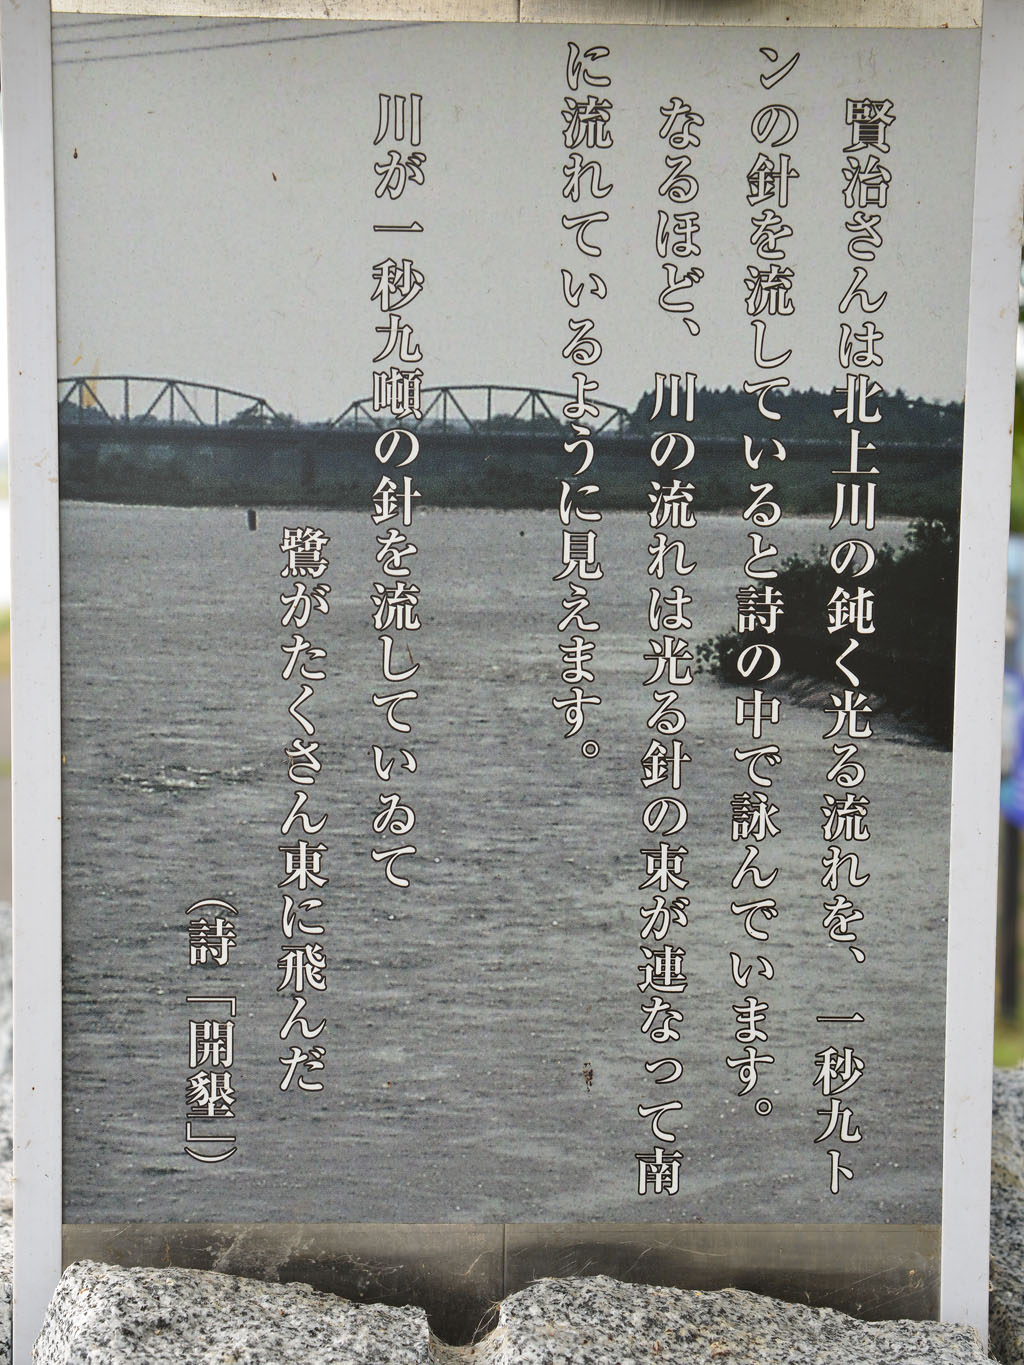 賢治さんは北上川の鈍く光る流れを、一秒九ト
ンの針を流していると詩の中で詠んでいます。
なるほど、川の流れは光る針の束が連なって南
に流れているように見えます。
川が一秒九噸の針を流していゐて
鷺がたくさん東に飛んだ
（詩「開墾」）